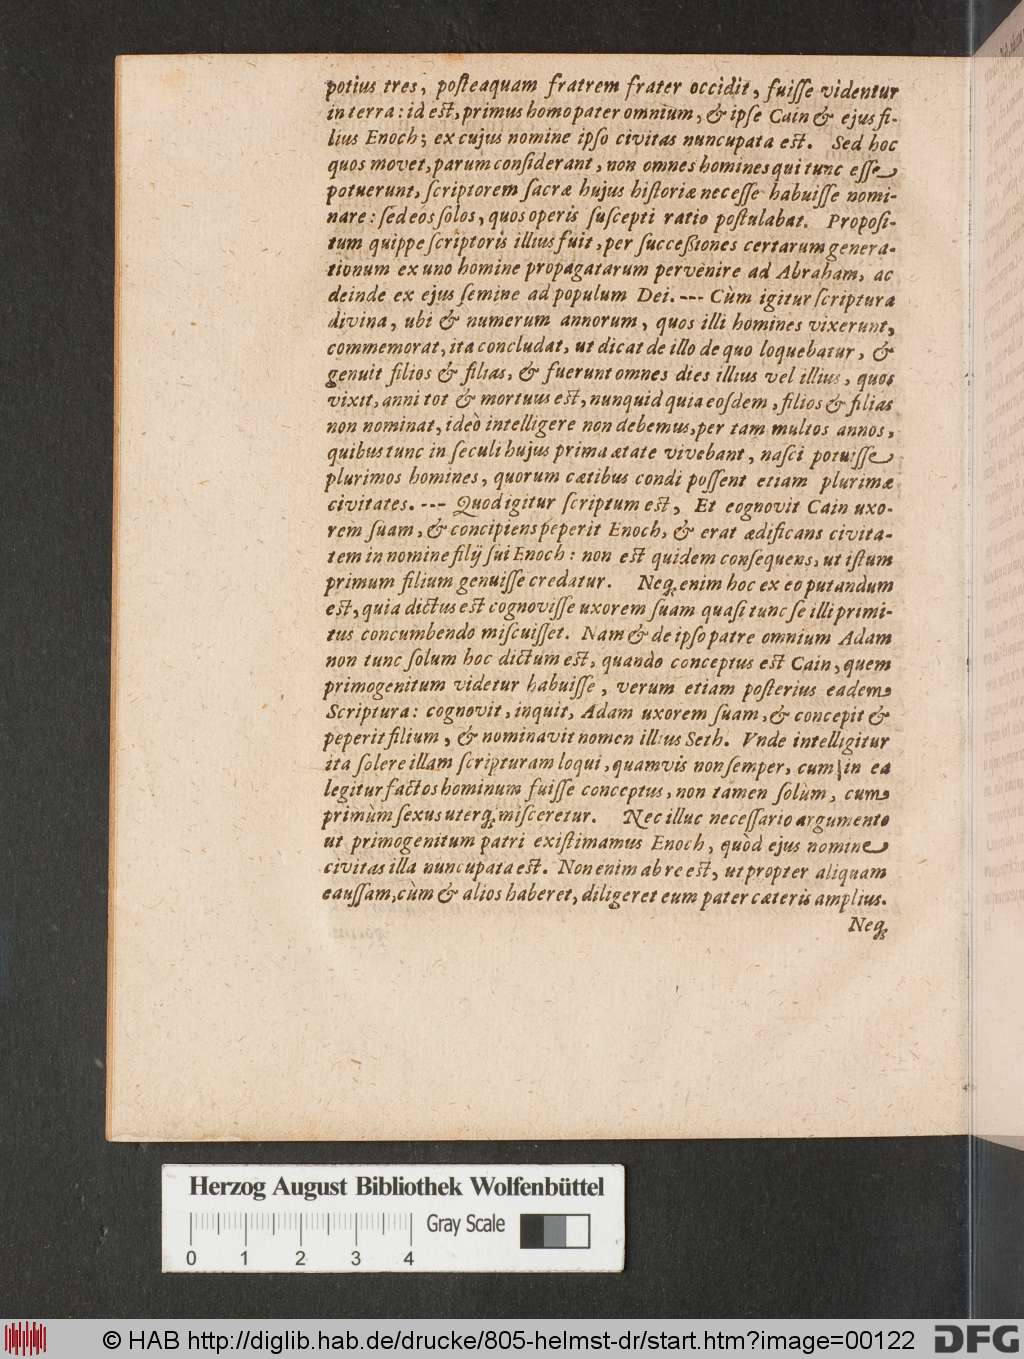 potius tres, posteaquam fratrem frater occidit, fuisse videntur
in terra: id est, primus homo pater omnium, & ipse Cain & ejus fi-
lius Enoch; ex cujus nomine ipso civitas nuncupata est. Sed hoc
quos movet, parum considerant, non omnes homines qui tunc esse
potuerunt, scriptorem sacræ hujus historiæ necesse habuisse nomi-
nare: sed eos solos, quos operis suscepti ratio postulabat. Proposi-
tum quippe scriptoris illius fuit, per successiones certarum genera-
tionum ex uno homine propagatarum pervenire ad Abraham, ac
deinde ex ejus semine ad populum Dei. --- Cùm igitur scriptura
divina, ubi & numerum annorum, quos illi homines vixerunt,
commemorat, ita concludat, ut dicat de illo de quo loquebatur, &
genuit filios & filias, & fuerunt omnes dies illius vel illius, quos
vixit, anni tot & mortuus est, nunquid quia eosdem, filios & filias
non nominat, ideò intelligere non debemus, per tam multos annos,
quibus tunc in seculi hujus prima ætate vivebant, nasci potuisse
plurimos homines, quorum cætibus condi possent etiam plurimæ
civitates. --- Quod igitur scriptum est, Et eognovit Cain uxo-
rem suam, & concipiens peperit Enoch, & erat ædificans civita-
tem in nomine filij sui Enoch: non est quidem consequens, ut istum
primum filium genuisse credatur. Neq; enim hoc ex eo putandum
est, quia dictus est cognovisse uxorem suam quasi tunc se illi primi-
tus concumbendo miscuisset. Nam & de ipso patre omnium Adam
non tunc solum hoc dictum est, quando conceptus est Cain, quem
primogenitum videtur habuisse, verum etiam posterius eadem
Scriptura: cognovit, inquit, Adam uxorem suam, & concepit &
peperit filium, & nominavit nomen illius Seth. Vnde intelligitur
ita solere illam scripturam loqui, quamvis non semper, cum in ea
legitur factos hominum fuisse conceptus, non tamen solùm, cum
primùm sexus uterq; misceretur. Nec illuc necessario argumento
ut primogenitum patri existimamus Enoch, quòd ejus nomine
civitas illa nuncupata est. Non enim ab re est, ut propter aliquam
eaussam, cùm & alios haberet, diligeret eum pater cæteris amplius.
Neq;
Herzog August Bibliothek Wolfenbüttel
Gray Scale
0 1 2 3 4
© HAB http://diglib.hab.de/drucke/805-helmst-dr/start.htm?image=00122
DFG